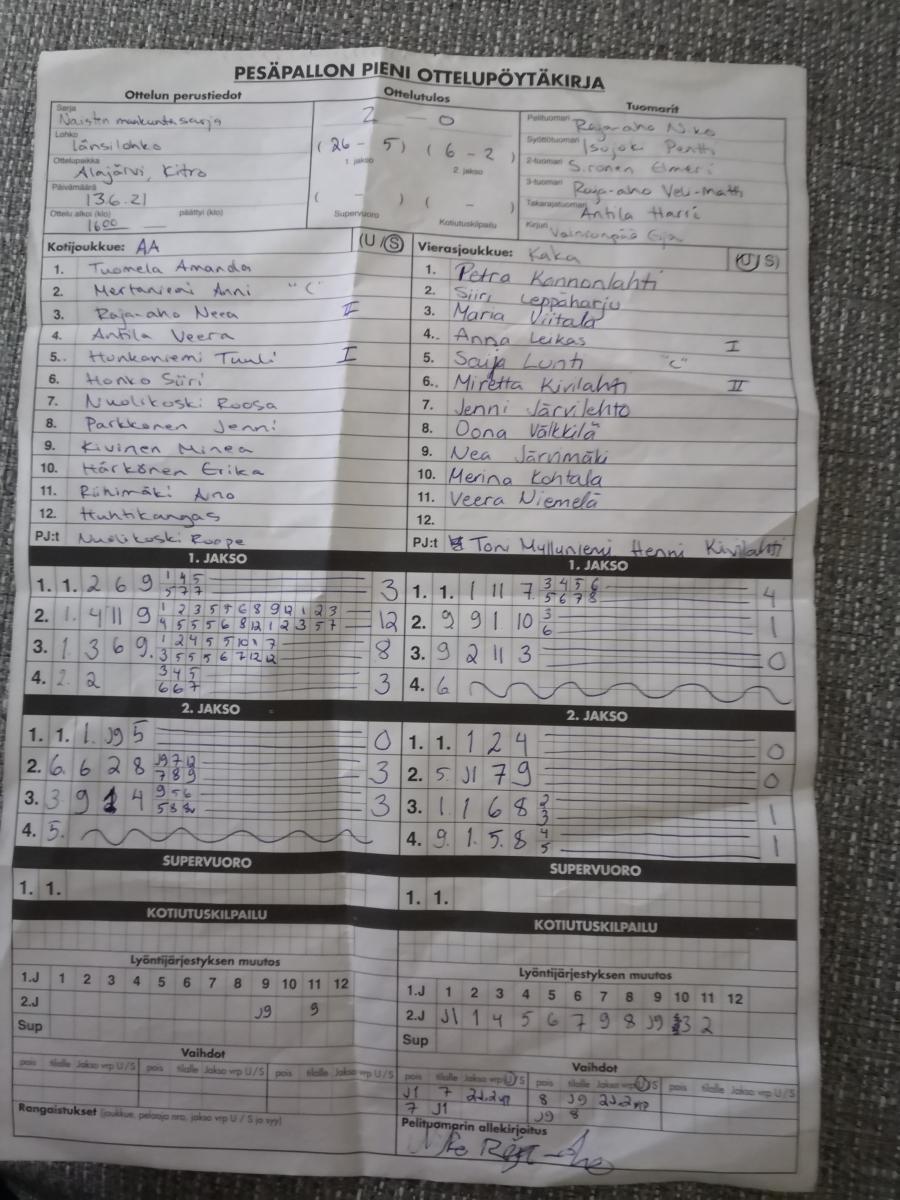 PESÄPALLON PIENI OTTELUPÖYTÄKIRJA
Ottelun perustiedot Ottelutulos Tuomarit
Sarja Naisten maakuntasarja
Lohko Länsilohko
Ottelupaikka Alajärvi, Kitro
Päivämäärä 13.6.21
Ottelu alkoi (klo) 1600 päättyi (klo) —
2 — 0
(26 - 5) (6 - 2)
1. jakso 2. jakso
( - ) ( - )
Supervuoro Kotiutuskilpailu
Pelituomari Raja-aho Niko
Syöttötuomari Isojoki Pentti
2-tuomari Sironen Elmeri
3-tuomari Raja-aho Veli-Matti
Takarajatuomari Antila Harri
Kirjuri Eija
Kotijoukkue: AA (U/S)
1. Tuomela Amanda
2. Mertaniemi Anni "C"
3. Raja-aho Neea II
4. Antila Veera
5. Hunkaniemi Tuuli I
6. Honko Siiri
7. Nuolikoski Roosa
8. Parkkonen Jenni
9. Kivinen Minea
10. Härkönen Erika
11. Riihimäki Aino
12. Huhtikangas
PJ:t Nuolikoski Roope
Vierasjoukkue: Kaka (U/S)
1. Petra Kannonlahti
2. Siiri Leppäharju
3. Maria Viitala
4. Anna Leikas I
5. Saija Lunti "C"
6. Miretta Kivilahti II
7. Jenni Järvilehto
8. Oona Välkkilä
9. Nea Järvimäki
10. Merina Kohtala
11. Veera Niemelä
12.
PJ:t Toni Myllyniemi Henni Kivilahti
1. JAKSO
1. 1. 2 6 9 1 4 5 3
5 7 7
2. 1. 4 11 9 1 2 3 5 5 6 8 9 12 1 2 3 12
4 5 5 5 6 8 12 1 2 3 5 7
3. 1. 3 6 9. 1 2 4 5 5 10 1 7 8
3 5 5 5 6 7 12 12
4. 2. 2 3 4 5 3
6 6 7
1. JAKSO
1. 1. 1 11 7 3 4 5 6 4
5 6 7 8
2. 9 9 1 10 3 1
6
3. 9 2 11 3 0
4. 6
2. JAKSO
1. 1. 1. J9 5 0
2. 6. 6 2 8 J9 7 12 3
7 8 9
3. 3 9 1 4 9 5 6 3
5 8 8
4. 5.
2. JAKSO
1. 1. 1 2 4 0
2. 5 J1 7 9 0
3. 1. 1 6 8 2 1
3
4. 9. 1. 5. 8 4 1
5
SUPERVUORO
1. 1.
SUPERVUORO
1. 1.
KOTIUTUSKILPAILU
KOTIUTUSKILPAILU
Lyöntijärjestyksen muutos
1.J 1 2 3 4 5 6 7 8 9 10 11 12
2.J J9 9
Sup
Lyöntijärjestyksen muutos
1.J 1 2 3 4 5 6 7 8 9 10 11 12
2.J J1 1 4 5 6 7 9 8 J9 3 2
Sup
Vaihdot
pois tilalle Jakso vrp U/S pois tilalle Jakso vrp U/S pois tilalle Jakso vrp U/S
Rangaistukset (joukkue, pelaaja nro, jakso vrp U / S ja syy)
Vaihdot
pois tilalle Jakso vrp U/S pois tilalle Jakso vrp U/S pois tilalle Jakso vrp U/S
J1 7 2J.2vp 8 J9 2J.2vp
7 J1 J9 8
Pelituomarin allekirjoitus